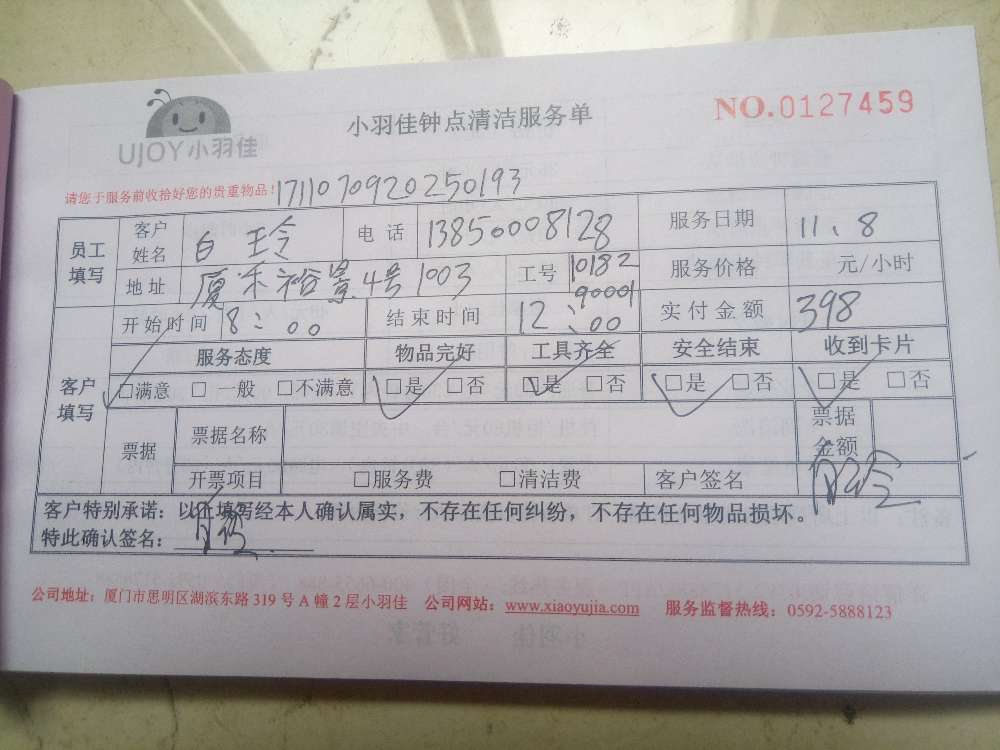 UJOY小羽佳
小羽佳钟点清洁服务单
NO.0127459
请您于服务前收拾好您的贵重物品! 1711070920250193
员工填写 客户姓名 白玲 电话 13850008128 服务日期 11、8
地址 厦禾裕景4号1003 工号 10182 90001 服务价格 元/小时
客户填写 开始时间 8:00 结束时间 12:00 实付金额 398
服务态度 物品完好 工具齐全 安全结束 收到卡片
□满意 □一般 □不满意 □是 □否 □是 □否 □是 □否 □是 □否
票据 票据名称 票据金额
开票项目 □服务费 □清洁费 客户签名
客户特别承诺：以上填写经本人确认属实，不存在任何纠纷，不存在任何物品损坏。
特此确认签名：
公司地址：厦门市思明区湖滨东路 319 号 A 幢 2 层小羽佳 公司网站：www.xiaoyujia.com 服务监督热线：0592-5888123